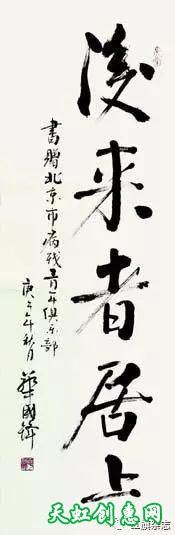 後来者居上
書贈北京市病残青年俱乐部
庚午年秋月 華國鋒
天虹创意网
旗杂志